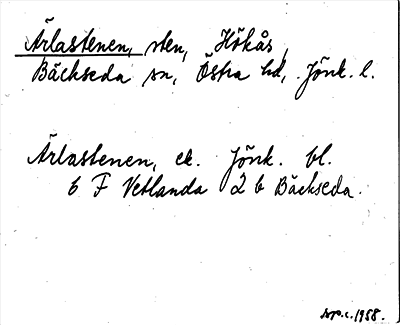 Ärlastenen, sten, Hökås,
Bäckseda sn, Östra hd, Jönk. l.
Ärlastenen, ek. Jönk. bl.
6 F Vetlanda 2 b Bäckseda.
1958.